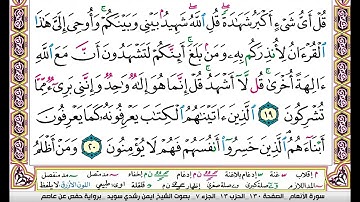 قُلْ أَيُّ شَىْءٍ أَكْبَرُ شَهَٰدَةً ۖ قُلِ ٱللَّهُ ۖ شَهِيدٌۢ بَيْنِى وَبَيْنَكُمْ ۚ وَأُوحِىَ إِلَىَّ هَٰذَا
ٱلْقُرْءَانُ لِأُنذِرَكُم بِهِۦ وَمَنۢ بَلَغَ ۚ أَئِنَّكُمْ لَتَشْهَدُونَ أَنَّ مَعَ ٱللَّهِ
ءَالِهَةً أُخْرَىٰ ۚ قُل لَّآ أَشْهَدُ ۚ قُلْ إِنَّمَا هُوَ إِلَٰهٌ وَٰحِدٌ وَإِنَّنِى بَرِىٓءٌ مِّمَّا
تُشْرِكُونَ ١٩ ٱلَّذِينَ ءَاتَيْنَٰهُمُ ٱلْكِتَٰبَ يَعْرِفُونَهُۥ كَمَا يَعْرِفُونَ
أَبْنَآءَهُمُ ۘ ٱلَّذِينَ خَسِرُوٓا۟ أَنفُسَهُمْ فَهُمْ لَا يُؤْمِنُونَ ٢٠ وَمَنْ أَظْلَمُ
سورة الأنعام الصفحة ١٣٠ الحزب ١٣ الجزء ٧ بصوت الشيخ أيمن رشدي سويد برواية حفص عن عاصم